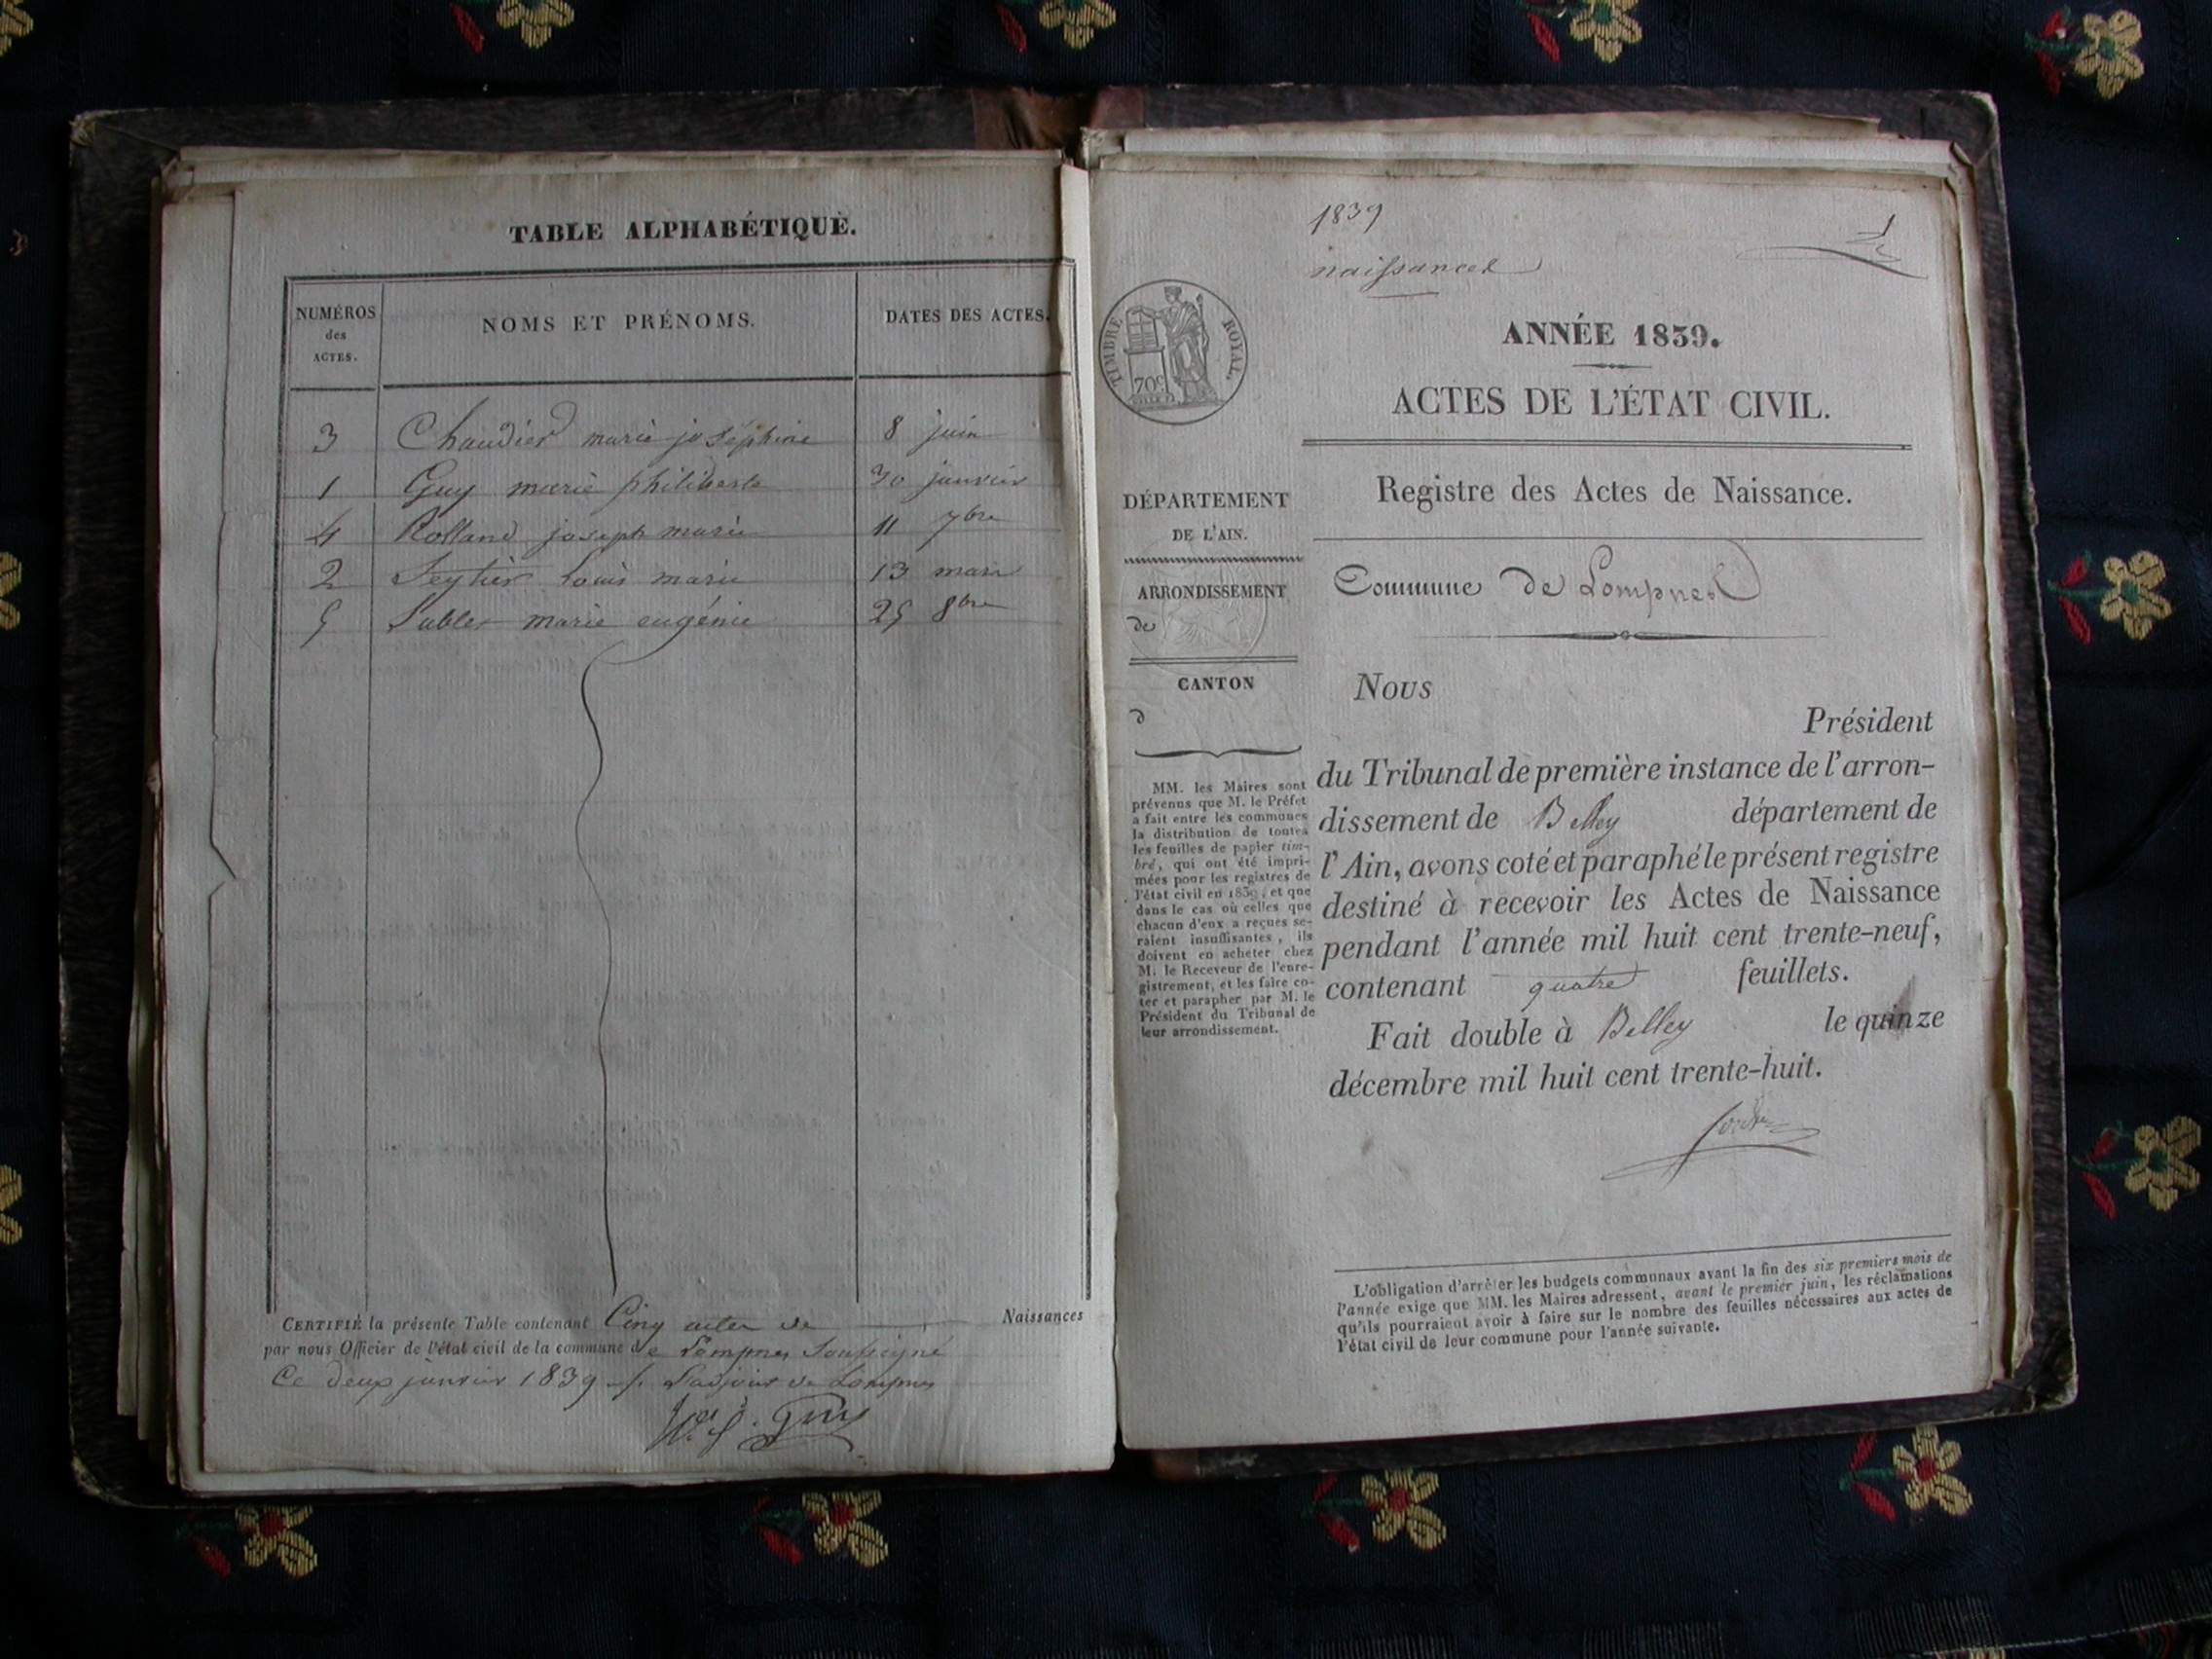 TABLE ALPHABÉTIQUE.
NUMÉROS des ACTES.
NOMS ET PRÉNOMS.
DATES DES ACTES.
3 Chaudier marie joséphine 8 juin
1 Guy marie philiberte 30 janvier
4 Rolland joseph marie 11 7bre
2 Seytier Louis marie 13 mars
5 marie eugénie 25 8bre
CERTIFIÉ la présente Table contenant Cinq actes de Naissances
par nous Officier de l'état civil de la commune de Lompnes Soussigné
Ce deux janvier 1839 L'adjoint de Lompnes
Guy
1839
naissances
1
TIMBRE ROYAL.
70c
ANNÉE 1839.
ACTES DE L'ÉTAT CIVIL.
Registre des Actes de Naissance.
Commune de Lompnes
DÉPARTEMENT
DE L'AIN.
ARRONDISSEMENT
de
CANTON
d
MM. les Maires sont
prévenus que M. le Préfet
a fait entre les communes
la distribution de toutes
les feuilles de papier tim-
bré, qui ont été impri-
mées pour les registres de
l'état civil en 1839, et que
dans le cas où celles que
chacun d'eux a reçues se-
raient insuffisantes, ils
doivent en acheter chez
M. le Receveur de l'enre-
gistrement, et les faire co-
ter et parapher par M. le
Président du Tribunal de
leur arrondissement.
Nous
Président
du Tribunal de première instance de l'arron-
dissement de Belley département de
l'Ain, avons coté et paraphé le présent registre
destiné à recevoir les Actes de Naissance
pendant l'année mil huit cent trente-neuf,
contenant quatre feuillets.
Fait double à Belley le quinze
décembre mil huit cent trente-huit.
L'obligation d'arrêter les budgets communaux avant la fin des six premiers mois de
l'année exige que MM. les Maires adressent, avant le premier juin, les réclamations
qu'ils pourraient avoir à faire sur le nombre des feuilles nécessaires aux actes de
l'état civil de leur commune pour l'année suivante.